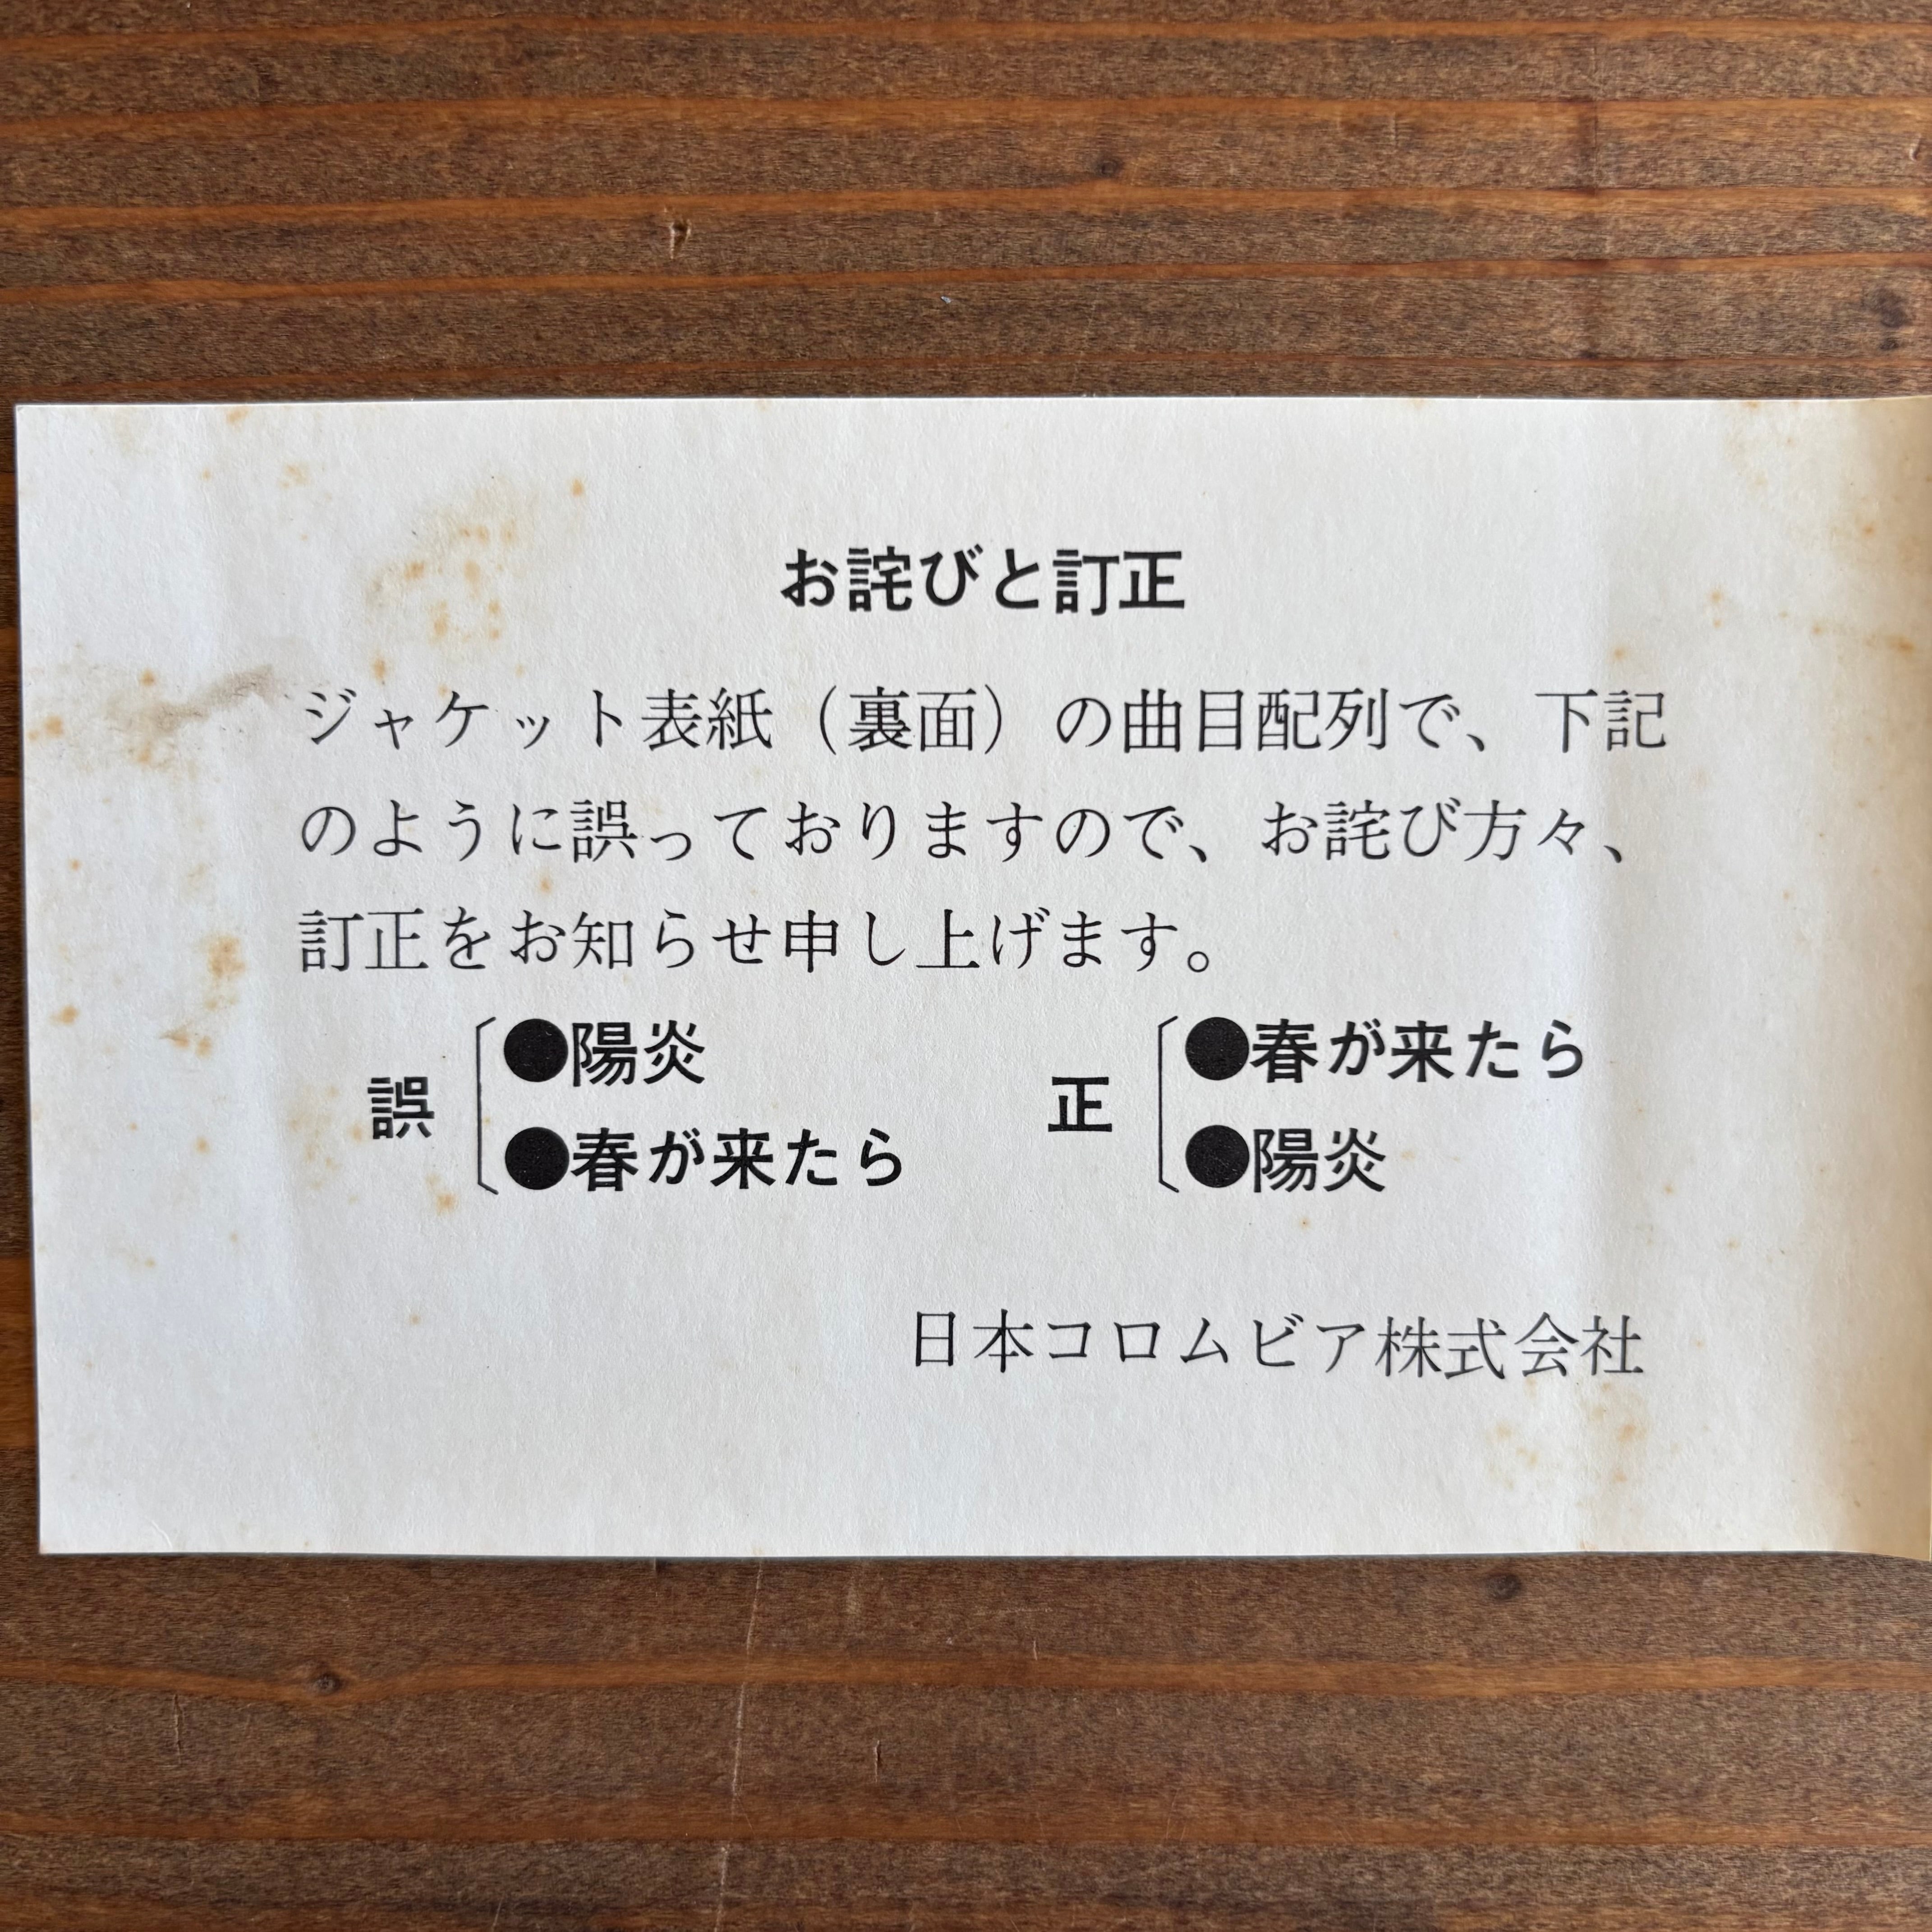 お詫びと訂正
ジャケット表紙（裏面）の曲目配列で、下記
のように誤っておりますので、お詫び方々、
訂正をお知らせ申し上げます。
誤
●陽炎
●春が来たら
正
●春が来たら
●陽炎
日本コロムビア株式会社